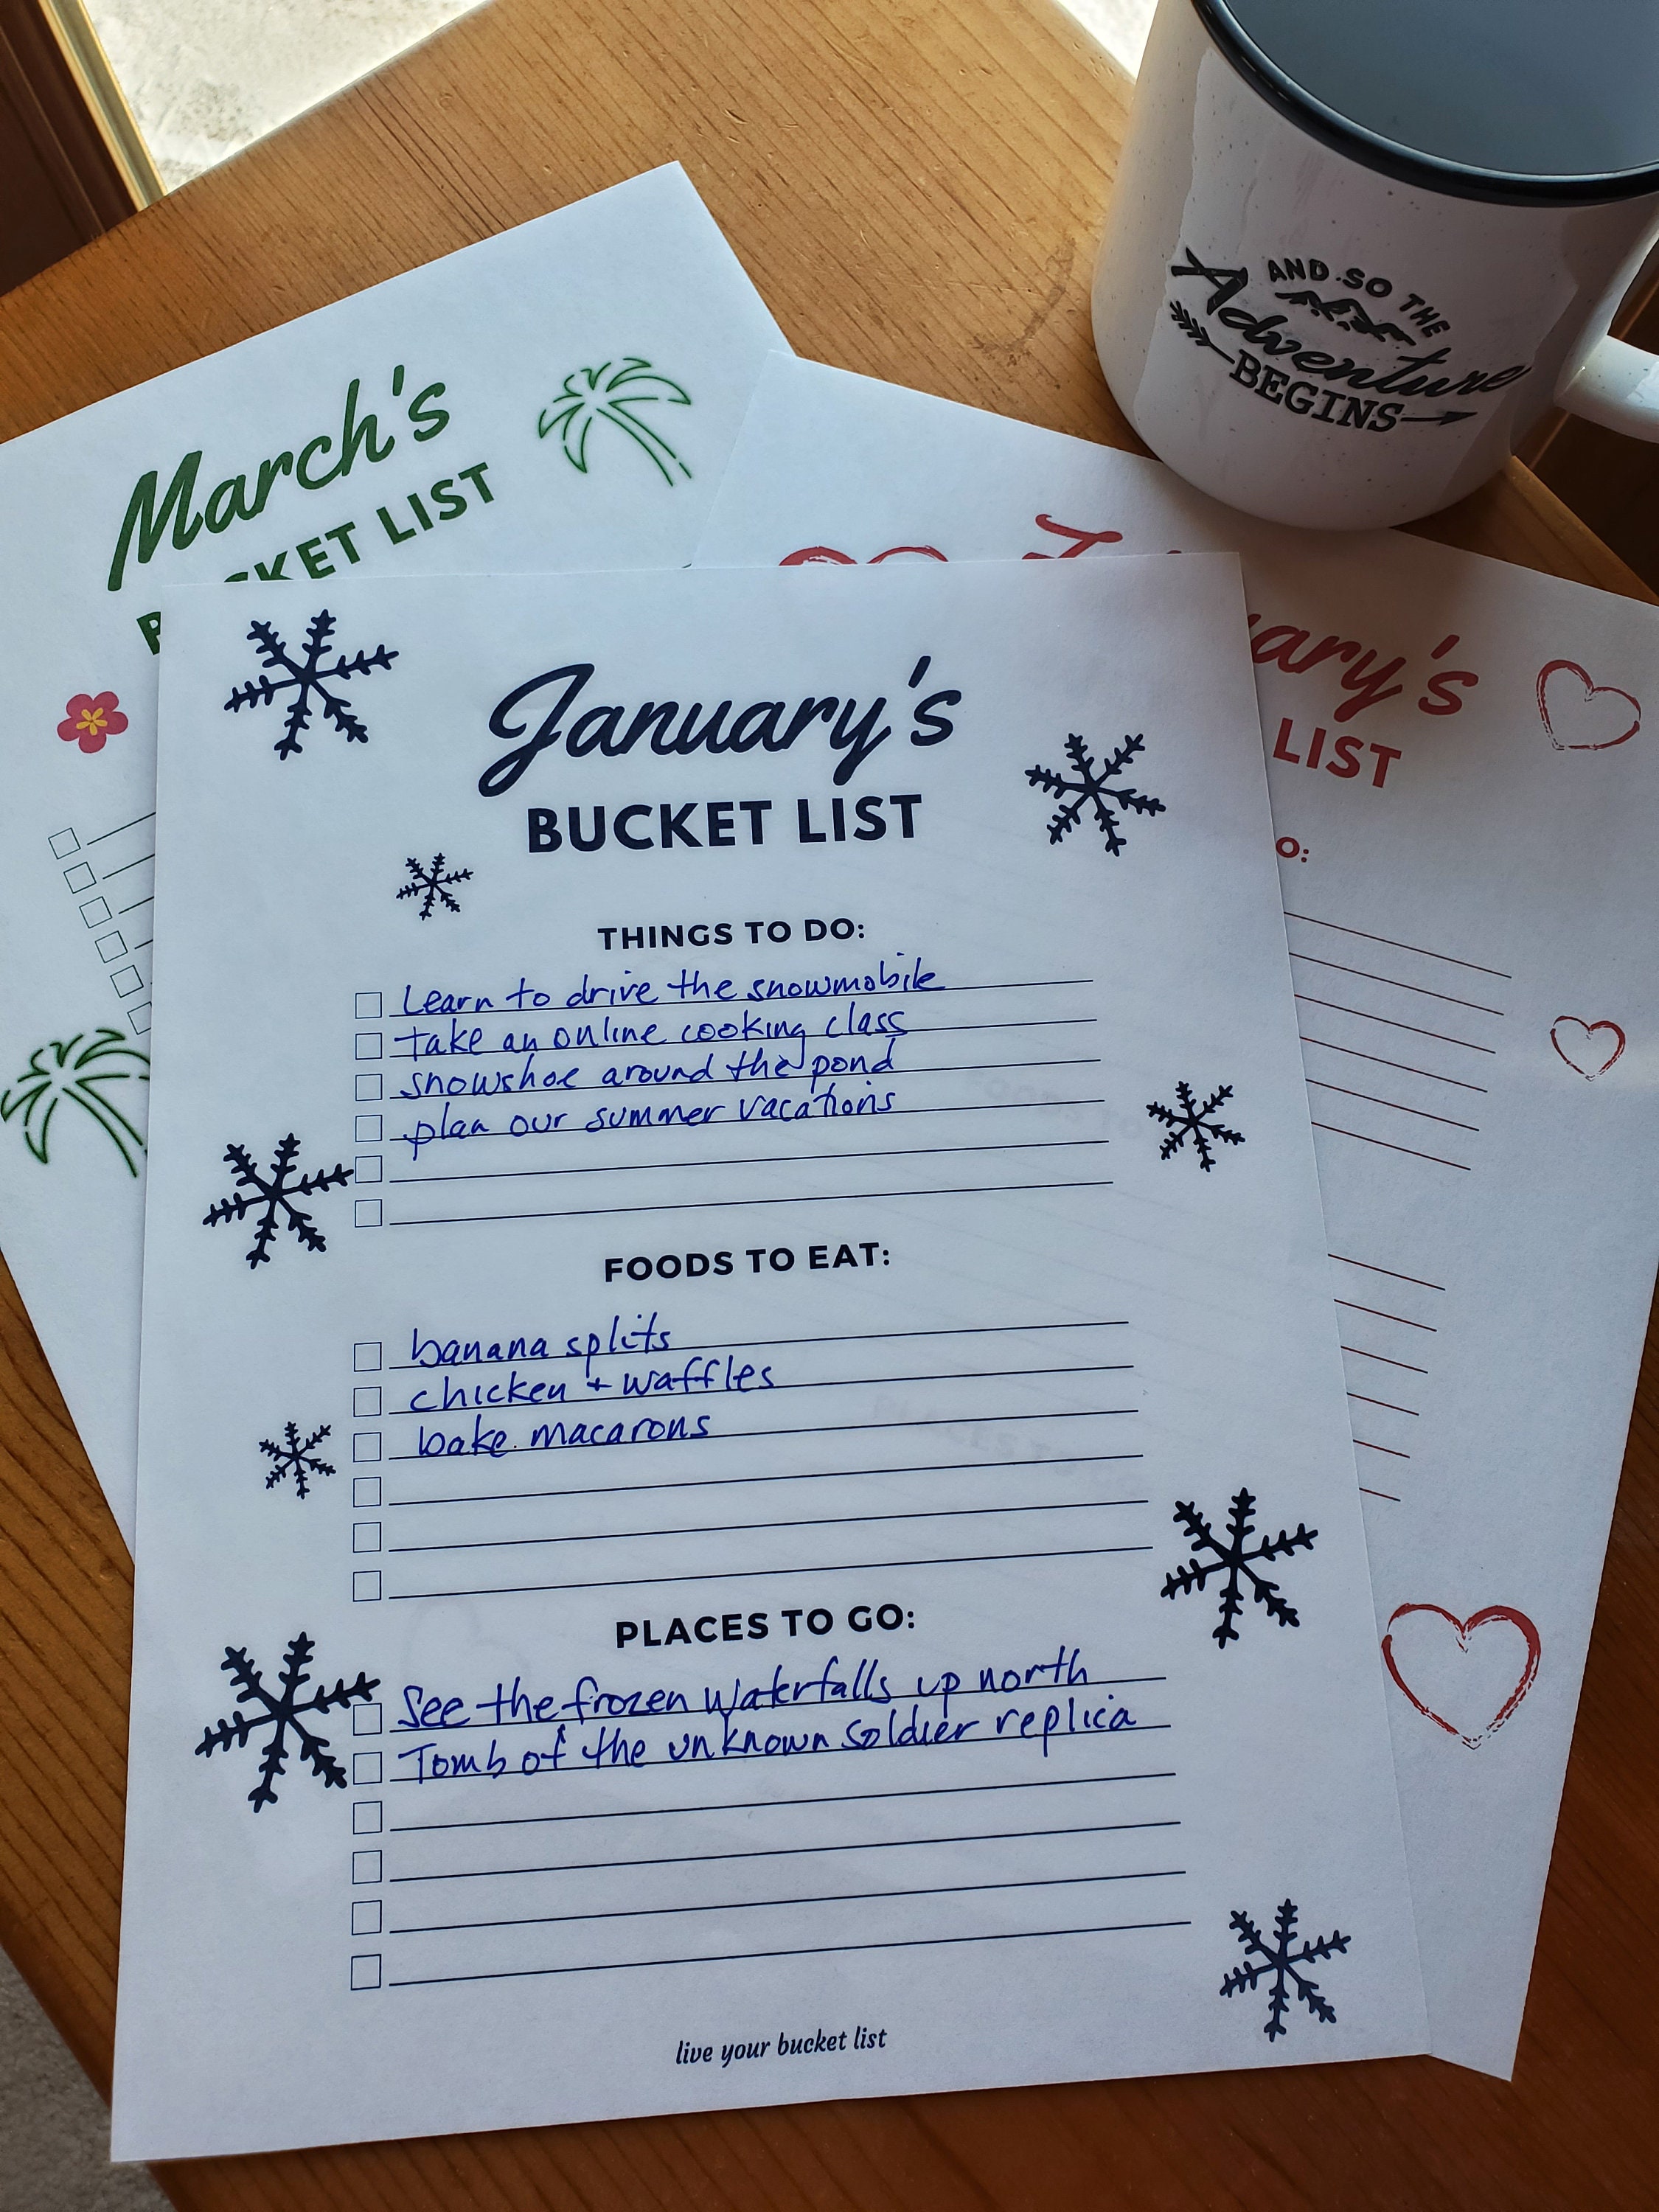 AND SO THE
Adventure
BEGINS
March's
KET LIST
uary's
LIST
O:
January's
BUCKET LIST
THINGS TO DO:
Learn to drive the snowmobile
take an online cooking class
snowshoe around the pond
plan our summer vacations
FOODS TO EAT:
banana splits
chicken + waffles
bake macarons
PLACES TO GO:
See the frozen waterfalls up north
Tomb of the unknown soldier replica
live your bucket list